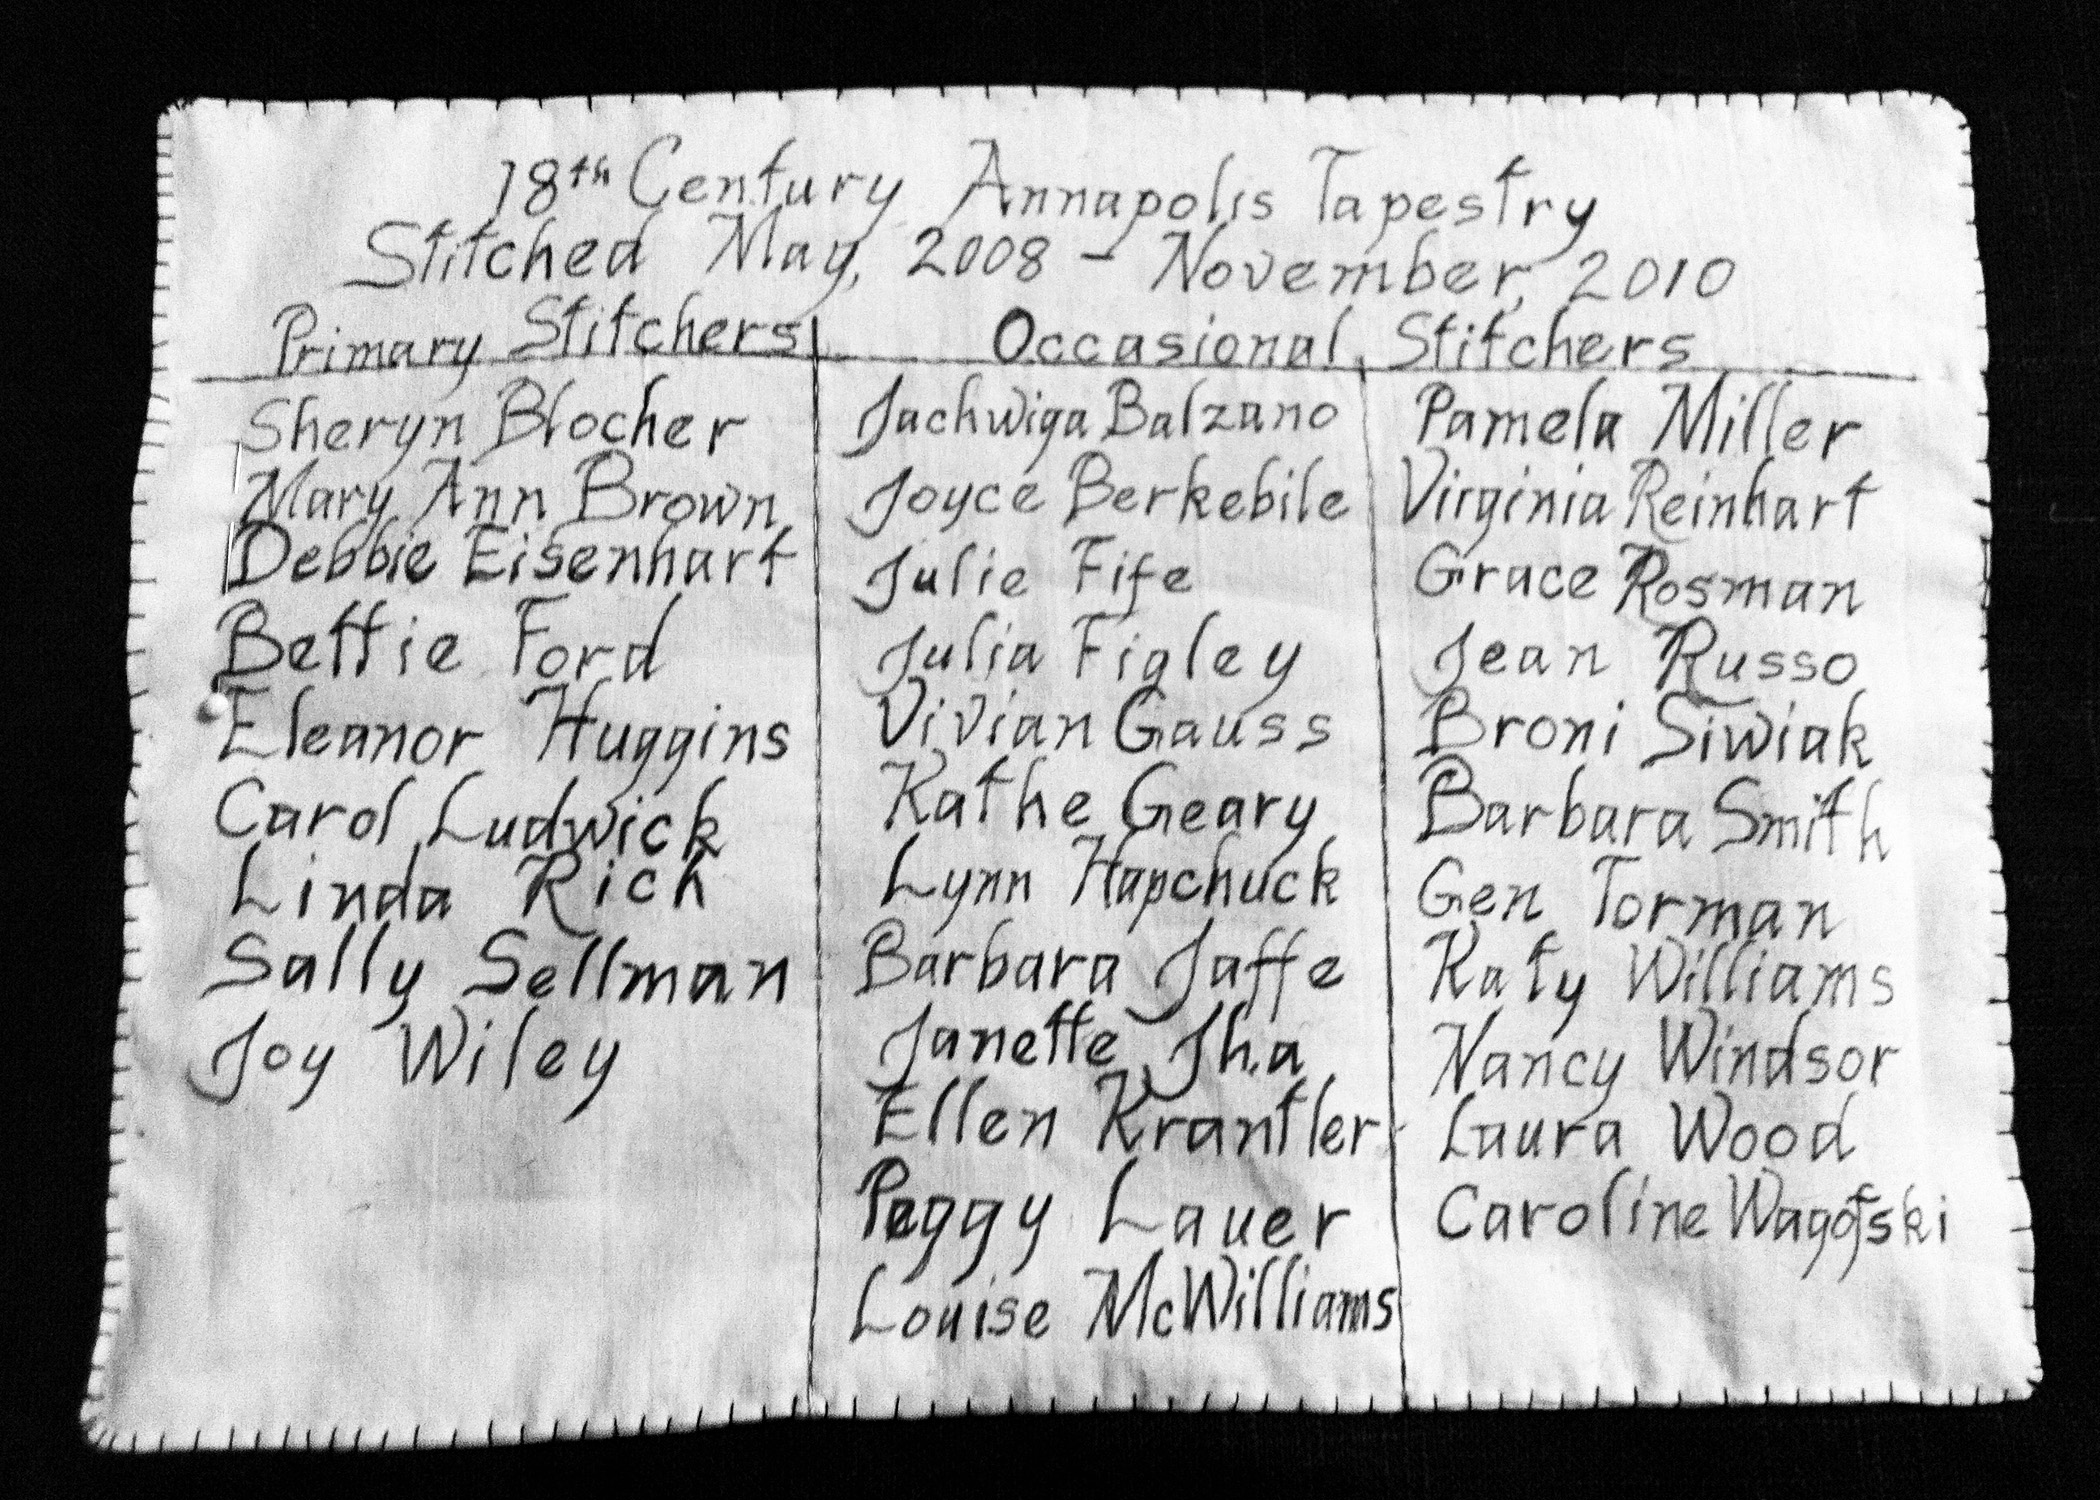 18th Century Annapolis Tapestry
Stitched May, 2008 - November, 2010
Primary Stitchers
Sheryn Blocher
Mary Ann Brown
Debbie Eisenhart
Bettie Ford
Eleanor Huggins
Carol Ludwick
Linda Rich
Sally Sellman
Joy Wiley
Occasional Stitchers
Jachwiga Balzano
Joyce Berkebile
Julie Fife
Julia Figley
Vivian Gauss
Kathe Geary
Lynn Hapchuck
Barbara Jaffe
Janette Jha
Ellen Krantler
Peggy Lauer
Louise McWilliams
Pamela Miller
Virginia Reinhart
Grace Rosman
Jean Russo
Broni Siwiak
Barbara Smith
Gen Torman
Katy Williams
Nancy Windsor
Laura Wood
Caroline